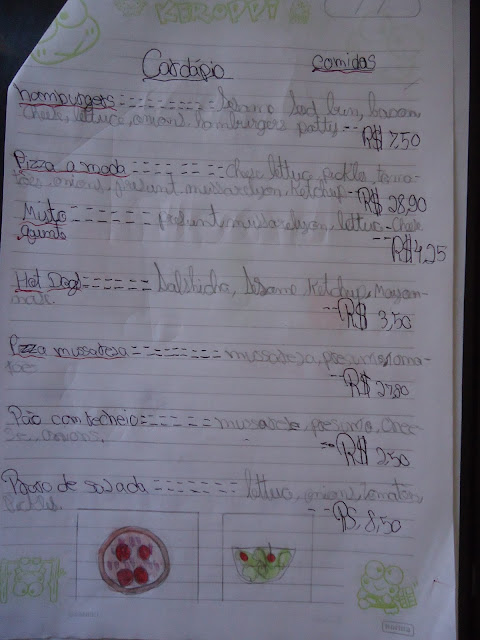 KEROPPI
Cardápio comidas
hamburgers - - - - - - - - Sesame Seed bun, bacon
cheek, lettuce, onions, hamburgers patty -- R$ 7,50
Pizza a moda - - - - - - - - chees, lettuc, pickles, toma-
toes, onions, presunt, mussarelyon, Ketchup -- R$ 28,90
Misto - - - - - - - presunt, mussarelyon, lettuc, Cheek
quente -- R$ 4,25
Hot Dog - - - - - - Salsicha, Sesame, Ketchup, Mayon-
-- R$ 3,50
Pizza mussarela - - - - - - - - mussarela, presunto, toma-
toe -- R$ 27,90
Pão com recheio - - - - - mussarela, presunto, Chee-
se, onions. -- R$ 2,50
de salada - - - - - - lettuc, onions, tomatoes,
Pickles. -- R$ 8,50